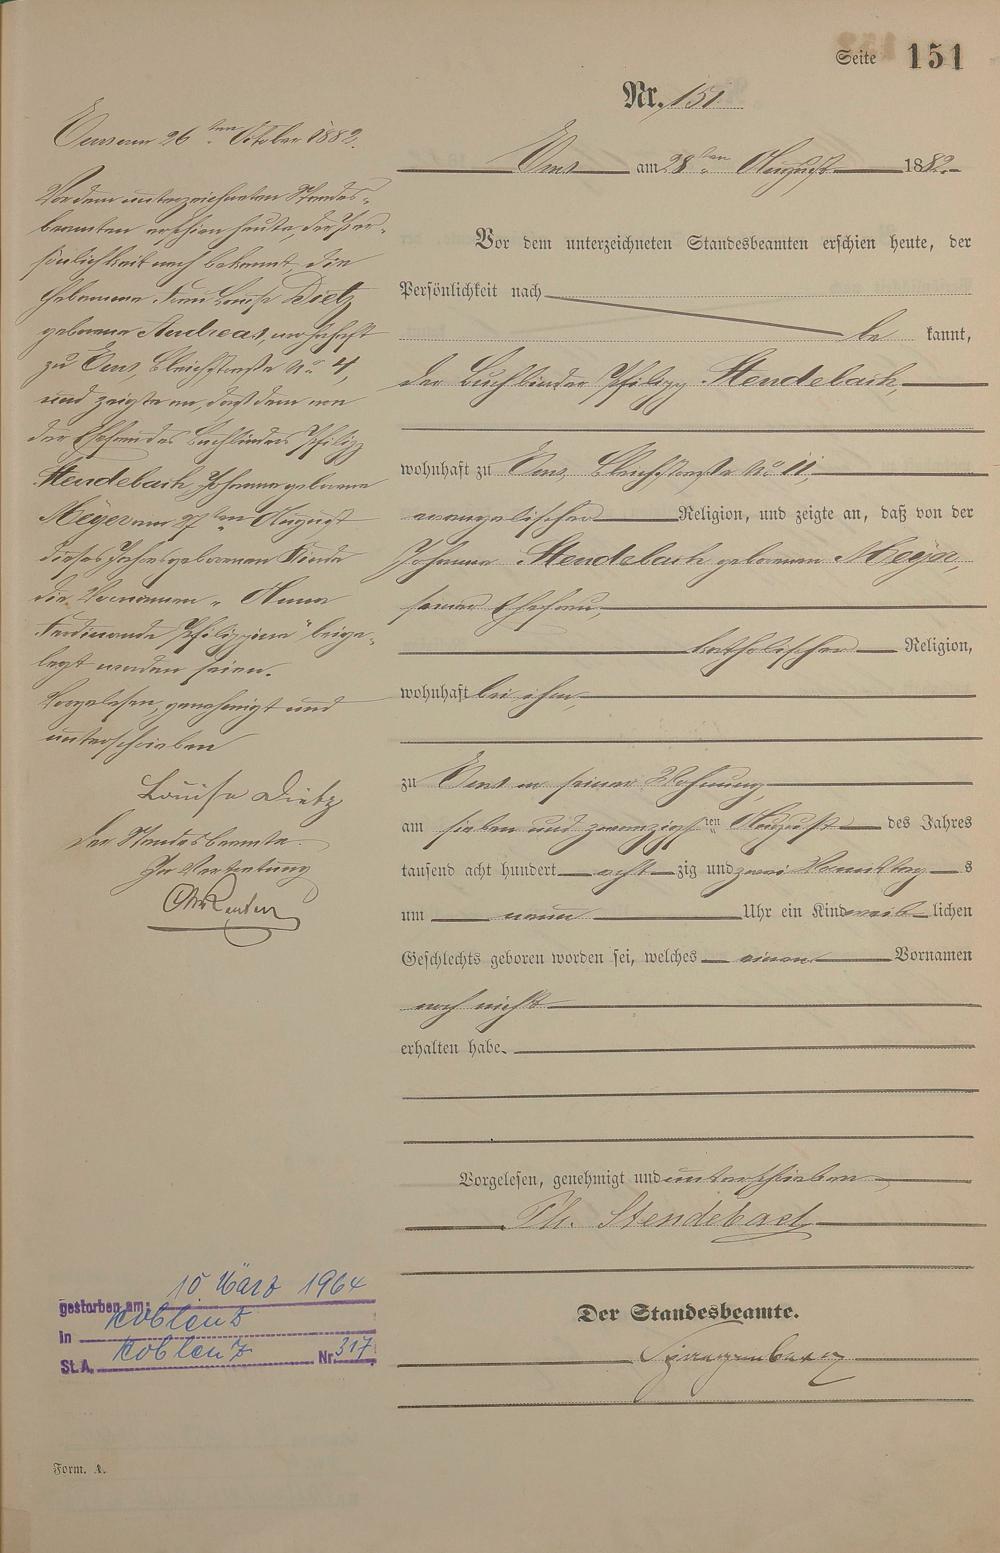 Seite 151
Nr. 151
Ems am 28ten August 1882.
Vor dem unterzeichneten Standesbeamten erschien heute, der
Persönlichkeit nach
be kannt,
der Buchbinder Philipp Stendebach,
wohnhaft zu Ems, Bleichstraße No 11,
evangelischer Religion, und zeigte an, daß von der
Johanna Stendebach geborenen Meyer,
seiner Ehefrau,
katholischer Religion,
wohnhaft bei ihm,
zu Ems in seiner Wohnung,
am sieben und zwanzigsten August des Jahres
tausend acht hundert acht zig und zwei Vormittag s
um neun Uhr ein Kind weib lichen
Geschlechts geboren worden sei, welches einen Vornamen
noch nicht
erhalten habe.
Vorgelesen, genehmigt und unterschrieben
Ph. Stendebach
Der Standesbeamte.
Ems am 26ten October 1882.
Vor dem unterzeichneten Standes-
beamten erschien heute, der Per-
sönlichkeit nach bekannt, die
Hebamme Frau Louise Dietz
geborene Andreas, wohnhaft
zu Ems, Bleichstraße No 4,
und zeigte an, daß dem von
der Ehefrau des Buchbinders Philipp
Stendebach Johanna geborene
Meyer am 27ten August
dieses Jahres geborenen Kinde
die Vornamen „Anna
Ferdinande Philippine" beige-
legt worden seien.
Vorgelesen, genehmigt und
unterschrieben
Louise Dietz
Der Standesbeamte.
In Vertretung
gestorben am: 10. März 1964
in Koblenz
St. A. Koblenz Nr. 317
Form. A.